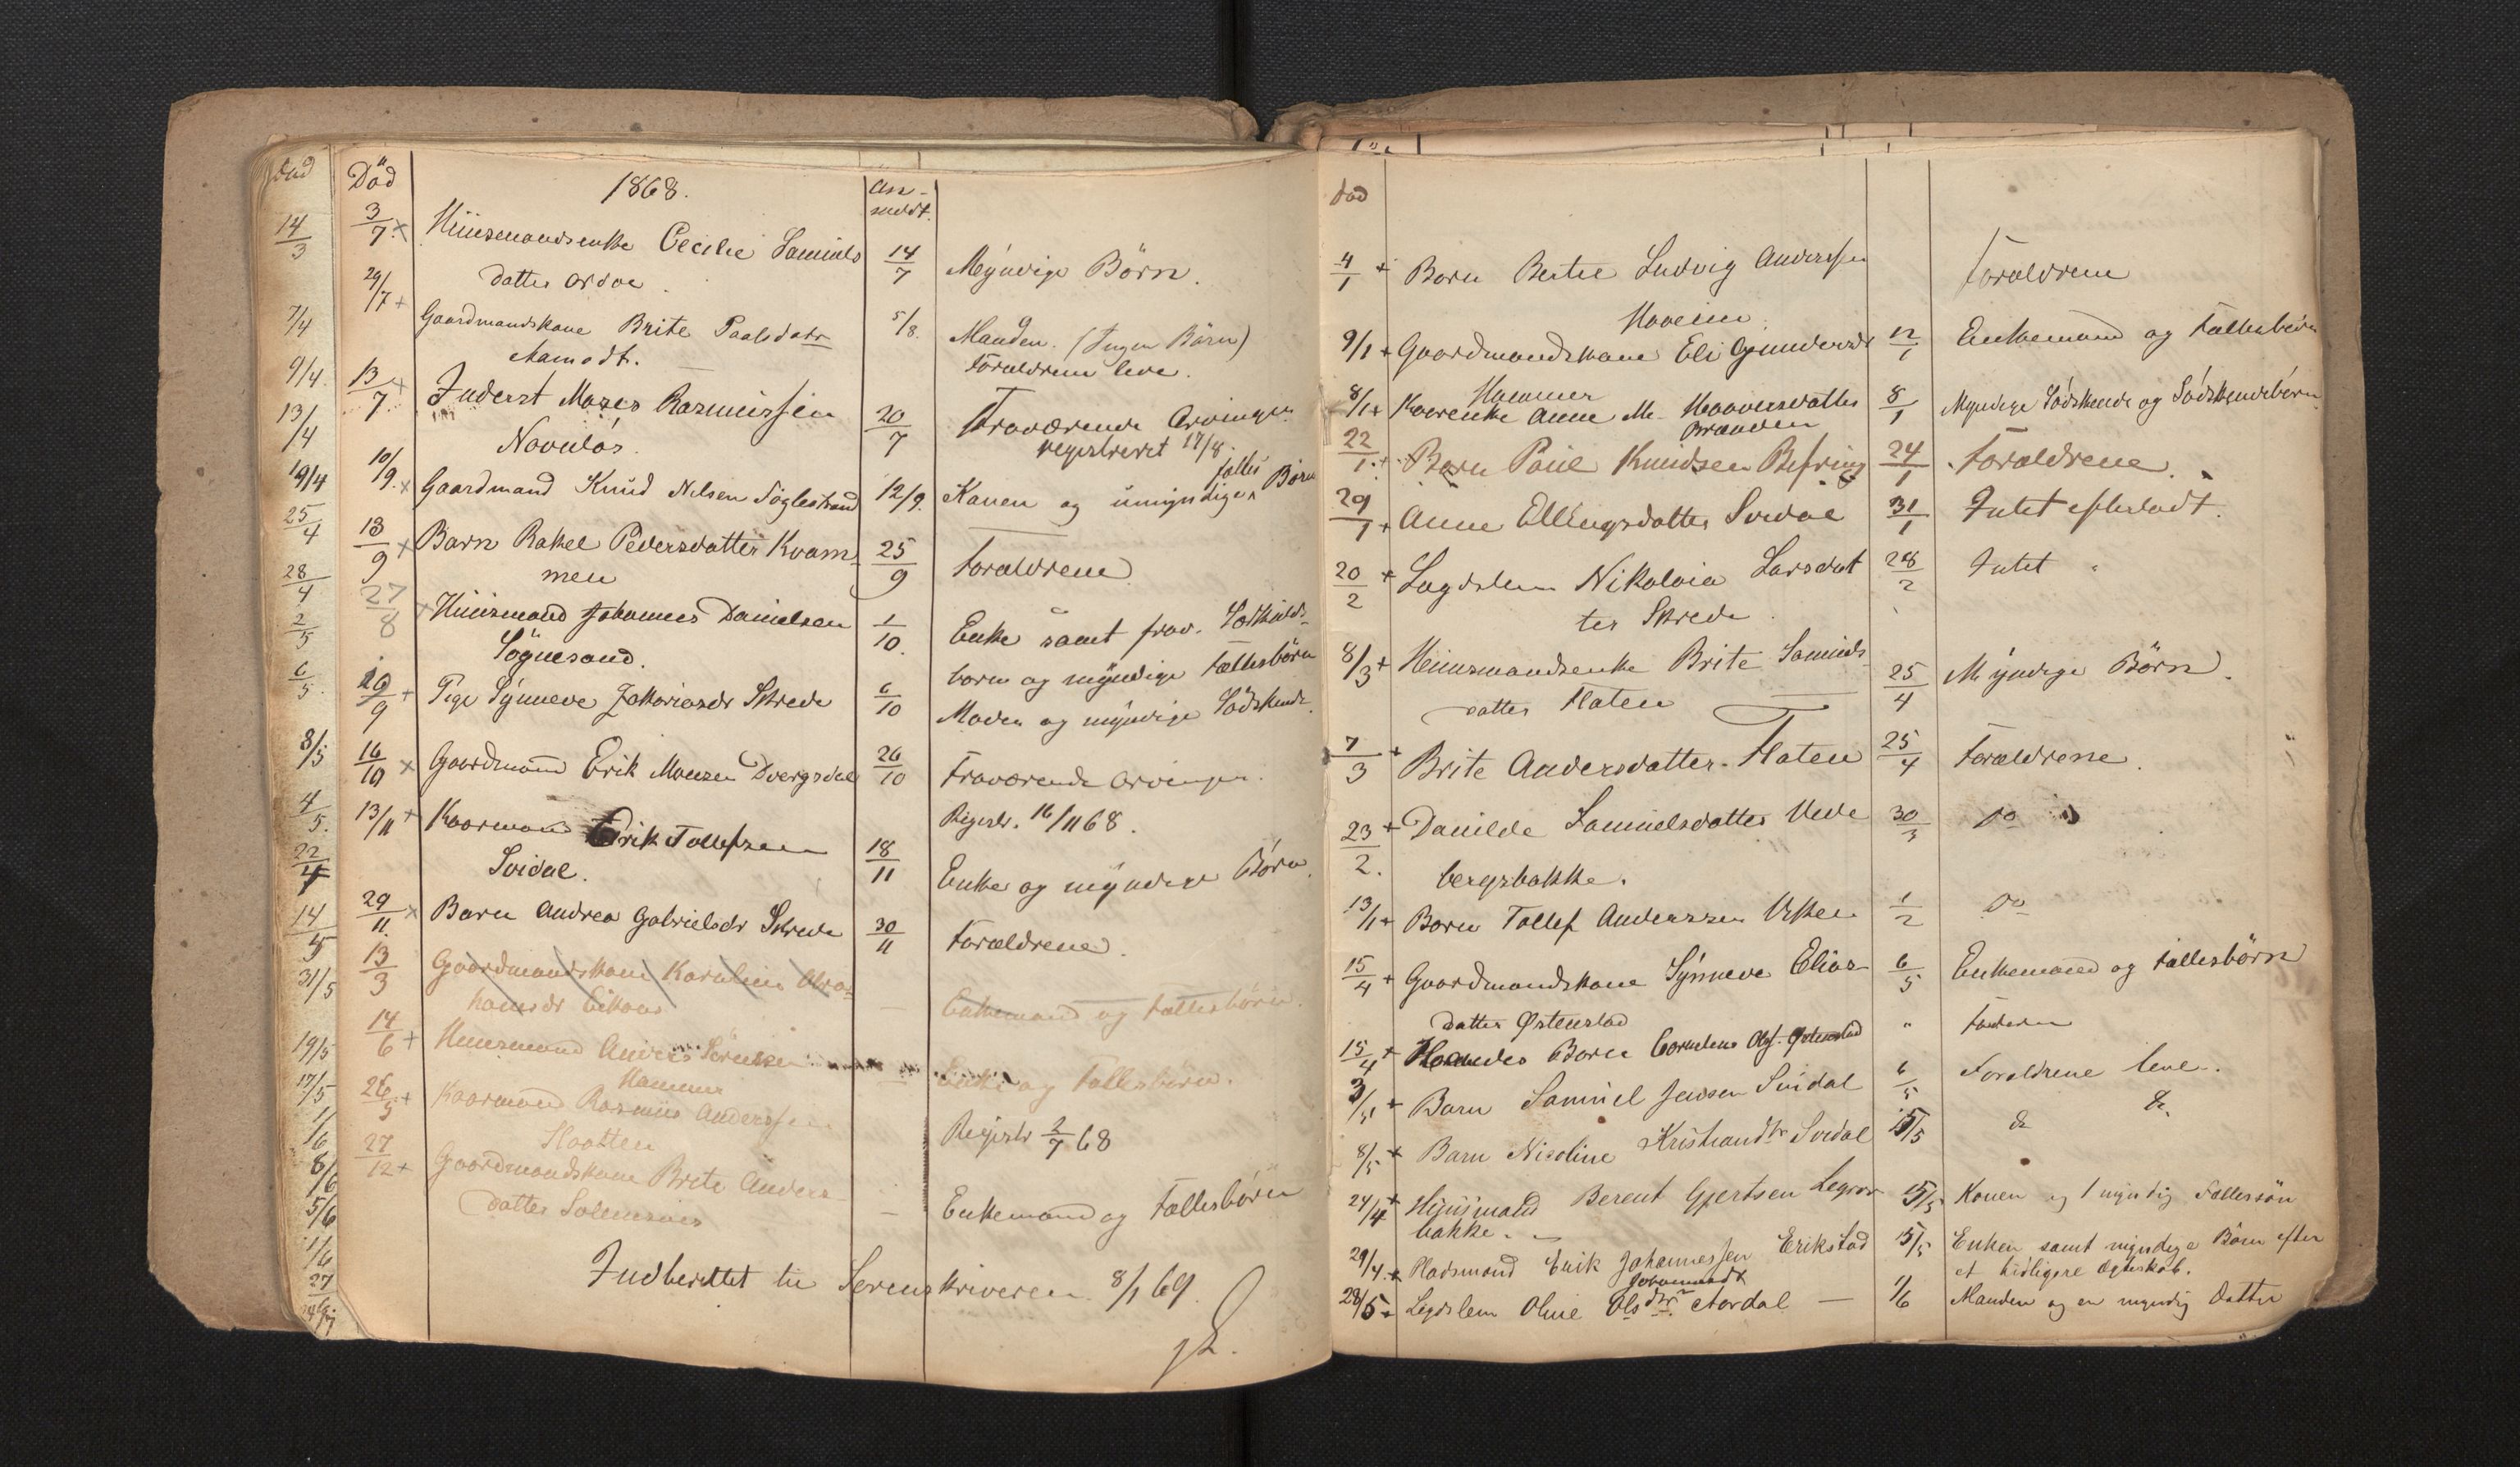 Död
1868.
an-
meldt.
3/7 × Huusmandsenke Cecilie Samuels
datter Ordal. 14/7 Myndige Börn.
29/7 + Gaardmandskone Brite Paalsdatr
Aamodt. 5/8. Manden. (Ingen Börn)
Forældrene leve.
13/7 × Inderst Moses Rasmussen
20/7 Fraværende Arvinger
registreret 17/8.
10/9. × Gaardmand Knud Nilsen Söglestrand 12/9. Konen og umyndige fælles Börn
18/9 × Barn Rakel Pedersdatter Kvam-
men 25/9 Forældrene
27/8 × Huusmand Johannes Danielsen
Sögnesand. 1/10. Enke samt frav.
born og myndige Fællesbörn
19/9 + Pige Synneve Zakariasdr Skrede 6/10 Moder og myndige Södskende.
16/10 × Gaardmand Erik Monsen Dvergsdal 26/10 Fraværende Arvinger.
Registr. 16/11 68.
13/11 + Kaarmand Erik Tollefsen
Svidal. 18/11 Enke og myndige Börn.
29/11. × Barn Andrea Gabrielsdr Skrede 30/11 Forældrene.
13/3 Gaardmandskone Karoline Abra-
hamsdr Eikaas — Enkemand og Fællesbörn.
14/6 + Huusmand Anders Sörensen
Hammer — Enke og Fællesbörn.
26/5 + Kaarmand Rasmus Anderssen
Registr 2/7 68
27/12 + Gaardmandskone Brite Anders-
datter — Enkemand og Fællesbörn
Indberettet til Sorenskriveren 8/1 69.
död
4/1 + Barn Bertel Ludvig Anderssen
Forældrene
9/1 + Gaardmandskone Eli Gundersdr
Hammer 12/1 Enkemand og Fællesbörn
8/1 + Kaarenke Anne M. Haaversdatter
Branden 8/1 Myndige Södskende og Södskendebörn
22/1. + Barn Paul Knudsen Befring 24/1 Forældrene.
29/1 + Anne Ellingsdatter Svidal 31/1 Intet efterladt.
20/2 + Lægdslem Nikolaia Larsdat
ter Skrede 28/2 Intet "
8/3 + Huusmandsenke Brite Samuels-
datter Flaten 25/4 Myndige Börn.
7/3 + Brite Andersdatter Flaten 25/4 Forældrene.
23/2. + Danilde Samuelsdatter Vede
bergsbakke. 30/3 do
13/1 + Barn Tollef Anderssen 1/2 do
15/4 + Gaardmandskone Synneve Elias-
datter Østenstad 6/5 Enkemand og Fællesbörn
15/4 + Hendes Barn Cornelius Ols. Østenstad " Faderen
3/5 + Barn Samuel Jensen Svidal 6/5 Forældrene leve.
8/5 + Barn Nicoline Kristiandtr Svidal 15/5 do do
24/4 + Huusmand Berent Gjertsen Legrov
bakke. 15/5 Konen og 1 myndig Fællessön
29/4. + Pladsmand Erik Johannessen Erikstad 15/5 Enken samt myndige Börn efter
et tidligere Ægteskab.
28/5 + Legdslem Oline Johannesdtr Aardal — 1/6 Manden og en myndig Datter